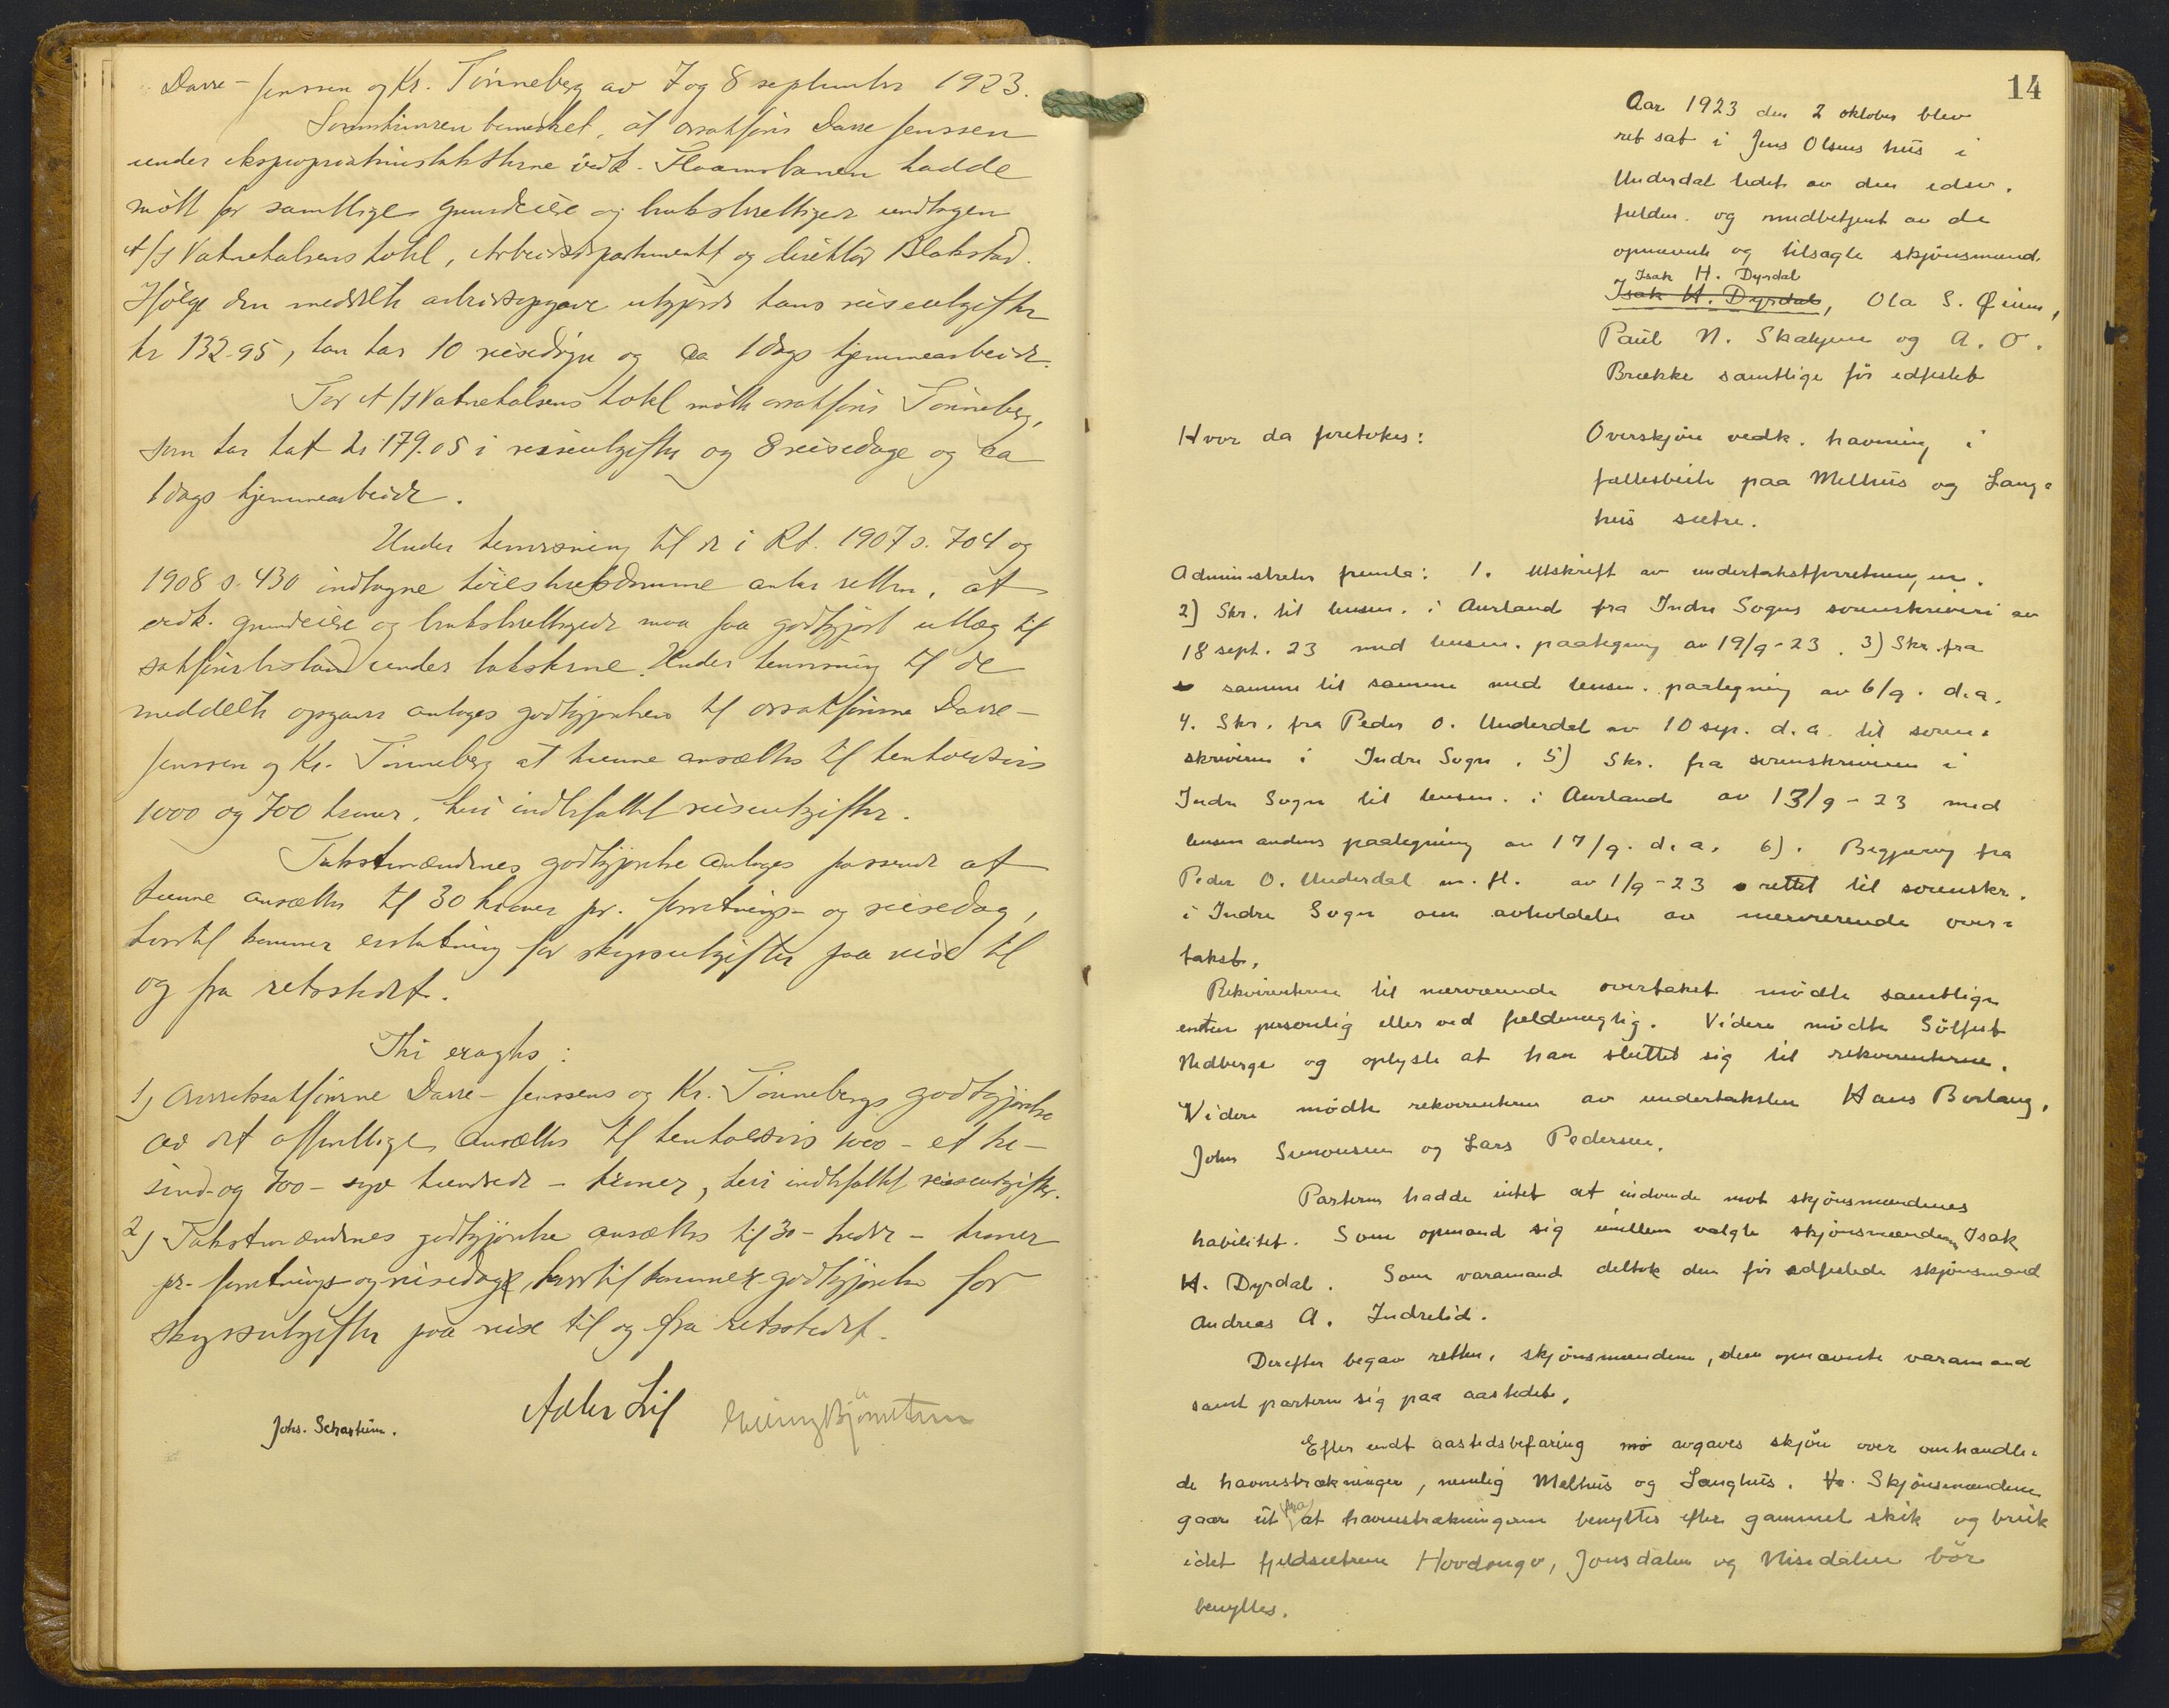 Darre-Jenssen og Kr. Tønneberg av 7 og 8 september 1923.
Sorenskriveren bemerket, at orsakfører Darre Jenssen
under ekspropriationstaksterne vedk. Flaamsbanen hadde
møtt for samtlige grundeiere og bruksberettigede undtagen
A/S Vatnahalsens hotel, Arbeidsdepartmentet og direktør Blakstad.
Ifølge den meddelte arbeidsopgave utgjorde hans reiseutgifter
kr 132.95, han har 10 reisedøgn og ca 1 dags hjemmearbeide.
For A/S Vatnehalsens hotel møtte orsakfører Tønneberg,
som har hat kr 179.05 i reiseutgifter og 8 reisedage og ca
1 dags hjemmearbeide.
Under henvisning til de i Rt. 1907 s. 704 og
1908 s. 430 indtagne høiesteretsdomme antar retten, at
vedk. grundeiere og bruksberettigede maa faa godtgjort utlæg til
sakførerbistand under taksterne. Under henvisning til de
meddelte opgaver antages godtgjørelsen til orsakførerne Darre-
Jenssen og Kr. Tønneberg at kunne ansættes til henholdsvis
1000 og 700 kroner, heri indbefattet reiseutgifter.
Takstmændenes godtgjørelse antages passende at
kunne ansættes til 30 kroner pr. forretnings- og reisedag,
hvortil kommer erstatning for skyssutgifter paa reise til
og fra retsstedet.
Thi eragtes:
1) Overretssakførerne Darre-Jenssens og Kr. Tønnebergs godtgjørelse
av det offentlige ansættes til henholdsvis 1000 - et tu-
sind - og 700 - syv hundrede - kroner, heri indbefattet reiseutgifter.
2) Takstmændenes godtgjørelse ansættes til 30 - tredve - kroner
pr. forretnings- og reisedag, hvortil kommer godtgjørelse for
skyssutgifter paa reise til og fra retsstedet.
Johs. Schartum.
14
Aar 1923 den 2 oktober blev
ret sat i Jens Olsens hus i
Underdal ledet av den edsv.
fuldm. og medbetjent av de
opnævnte og tilsagte skjønsmænd.
Isak H. Dyrdal
Isak H. Dyrdal, Ola S. Øium,
Paul N. Skahjem og A. O.
Brække samtlige før edfæstet
Hvor da foretokes:
Overskjøn vedk. havning i
fællesbeite paa Melhus og Lang-
hus sætre.
Administrator fremla: 1. Utskrift av undertakstforretningen.
2) Skr. til lensm. i Aurland fra Indre Sogns sorenskriveri av
18 sept. 23 med lensm. paategning av 19/9-23. 3) Skr. fra
samme til samme med lensm. paategning av 6/9. d.a.
4. Skr. fra Peder O. Underdal av 10 sep. d.a. til soren-
skriveren i Indre Sogn. 5) Skr. fra sorenskriveren i
Indre Sogn til lensm. i Aurland av 13/9-23 med
lensmandens paategning av 17/9. d.a. 6). Begjæring fra
Peder O. Underdal m.fl. av 1/9-23 rettet til sorenskr.
i Indre Sogn om avholdelse av nærværende over-
takst.
Rekvirenterne til nærværende overtakst mødte samtlige
enten personlig eller ved fuldmægtig. Videre mødte Sølfest
Nedberge og oplyste at han sluttet sig til rekvirenterne.
Videre mødte rekvirenterne av undertaksten Hans Borlaug,
John Simonsen og Lars Pedersen.
Parterne hadde intet at indvende mot skjønsmændenes
habilitet. Som opmand sig imellem valgte skjønsmændene Isak
H. Dyrdal. Som varamand deltok den før edfæstede skjønsmand
Andreas A. Indrelid.
Derefter begav retten, skjønsmændene, den opnævnte varamand
samt parterne sig paa aastedet.
Efter endt aastedsbefaring avgaves skjøn over omhandle-
de havnestrækninger, nemlig Melhus og Langhus. Skjønsmændene
gaar ut fra at havnestrækningerne benyttes efter gammel skik og bruk
idet fjeldsætrene Hovdungo, Jonsdalen og Nisedalen bør
benyttes.